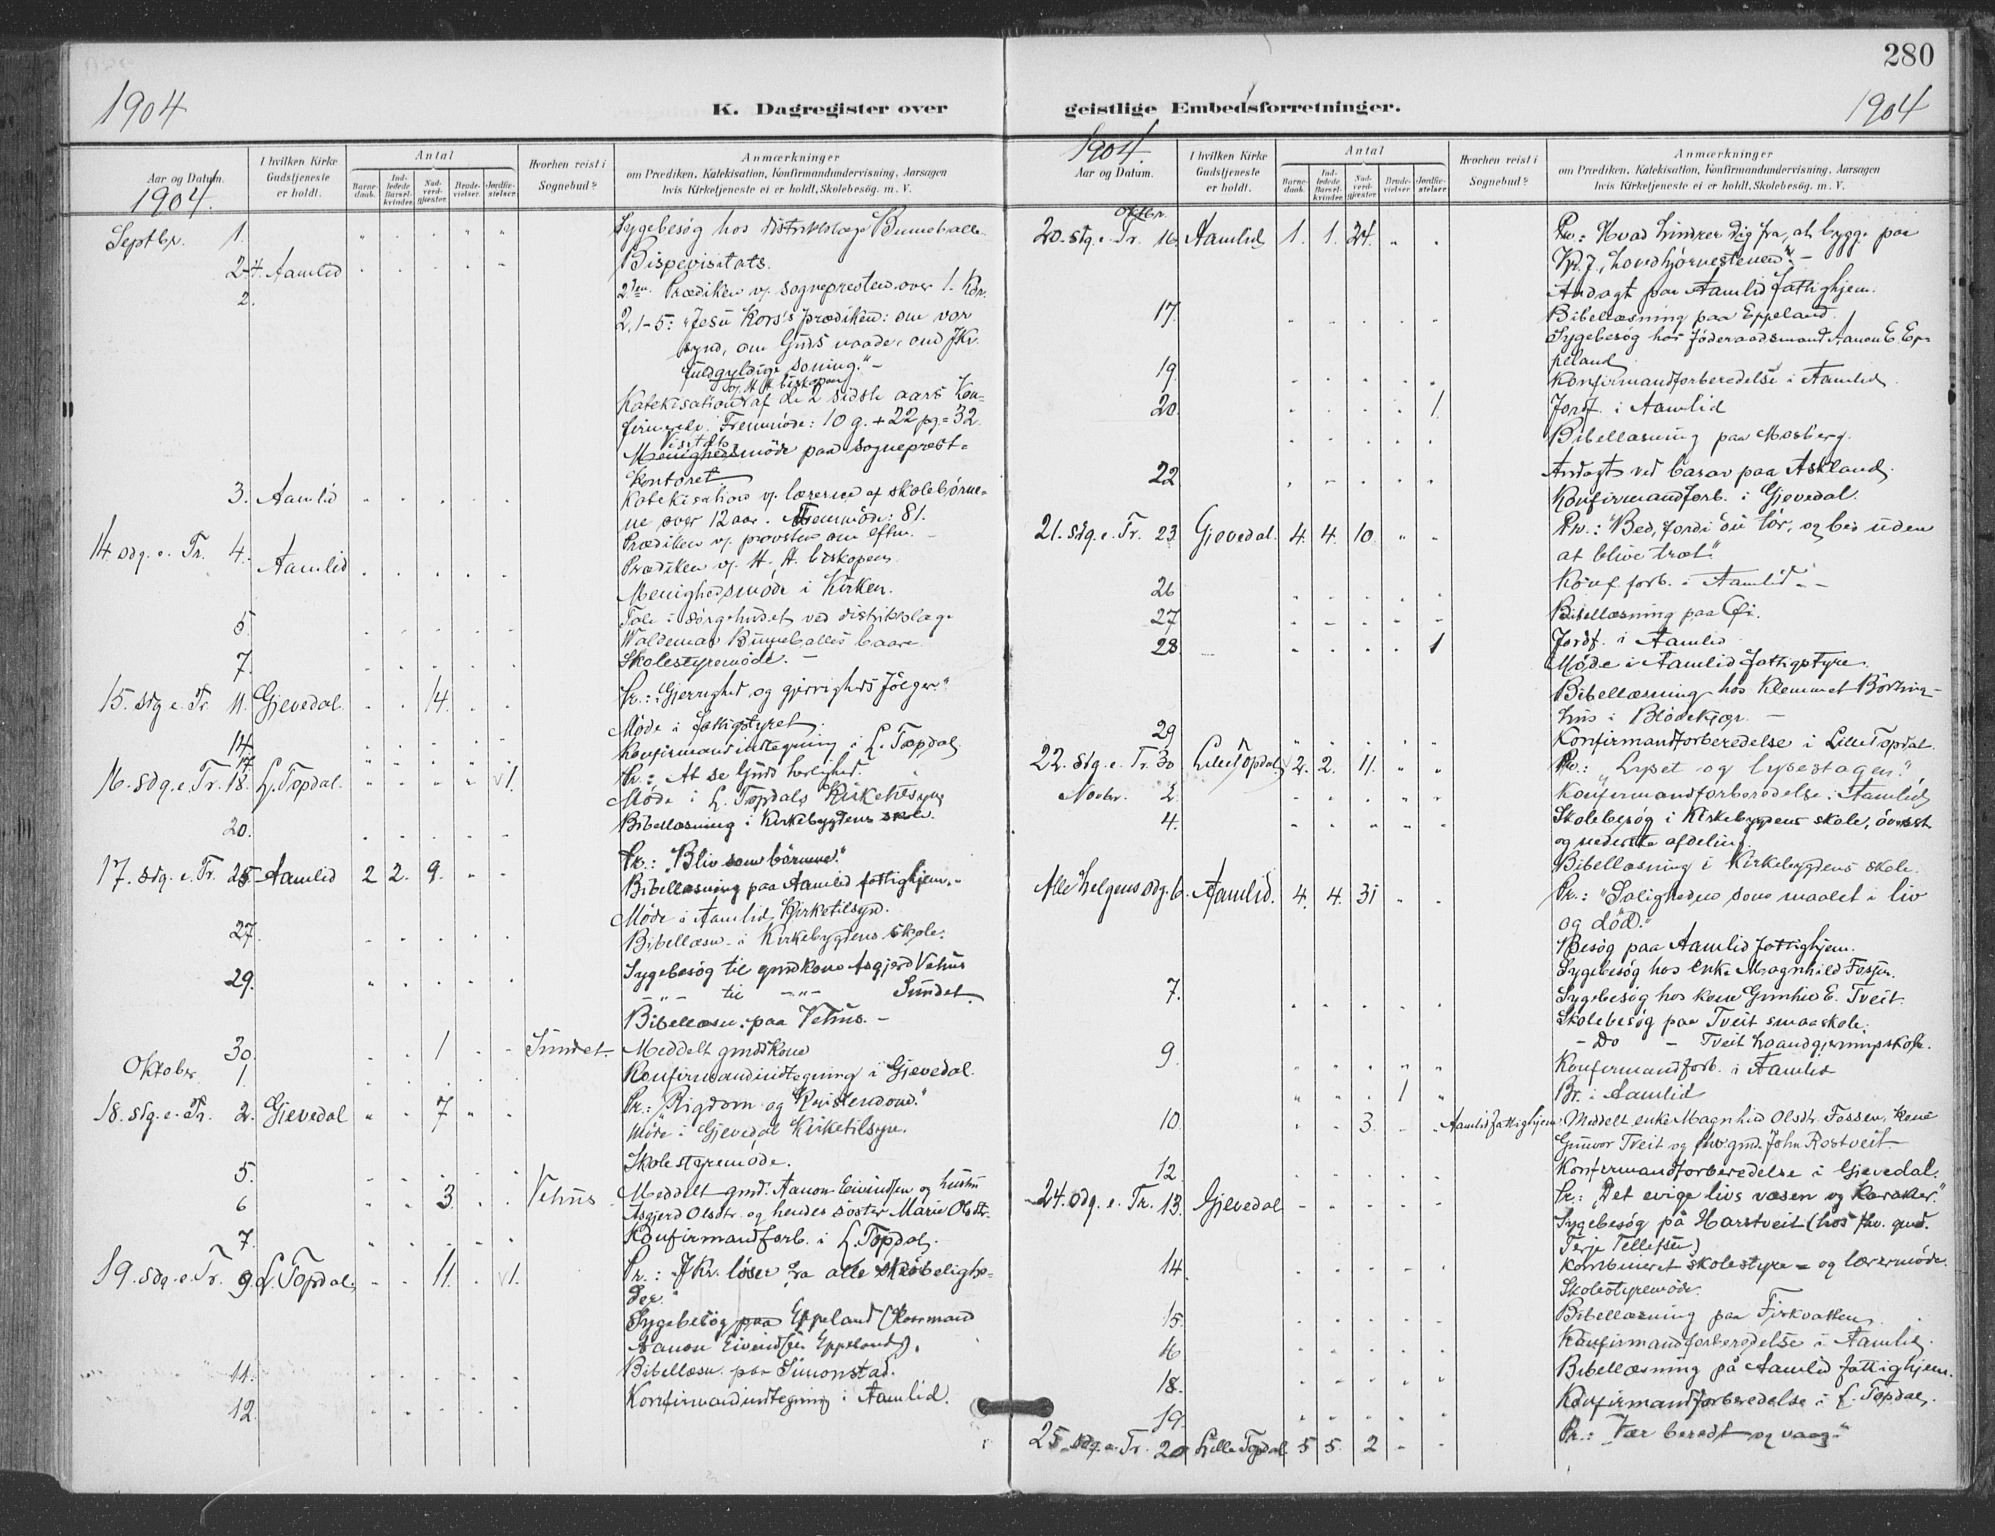 280
1904
K. Dagregister over
geistlige Embedsforretninger.
1904
Aar og Datum.
I hvilken Kirke Gudstjeneste er holdt.
Antal
Barnedaab.
Indledede Barselkvinder.
Nadverdgjester.
Brudevielser.
Jordfæstelser.
Hvorhen reist i Sognebud?
Anmærkninger
om Prædiken, Katekisation, Konfirmandundervisning, Aarsagen
hvis Kirketjeneste ei er holdt, Skolebesøg. m. V.
1904.
Septbr. 1. Sygebesög hos distriktslæge Bunneballe.
2-4. Aamlid Bispevisitats.
2. Prædiken v. sognepresten over 1. Kor.
2, 1-5: "Jesu Kors's prædiken: om vor
synd, om Guds naade, om J Kr.
fuldgyldige soning." -
v. H. H. biskopen
Katekisation af de 2 sidste aars kon-
firmerede. Fremmöde: 10 g. + 22 pg. = 32.
Visitats
Menighedsmöde paa sogneprest-
kontoret
3. Aamlid Katekisation v. lærerne af skolebörne-
ne over 12 aar. Fremmöde: 81.
14. sdg. e. Tr. 4. Aamlid Prædiken v. provsten om eftm.
Prædiken v. H. H. biskopen.
Menighedsmöde i Kirken.
5. Tale i sörgehuset ved distriktslæge
Waldemar Bunneballes baare.
7. Skolestyremöde. -
15. sdg. e. Tr. 11. Gjevedal. 14. Pr.: "Gjerrighed og gjerrigheds fölger."
Möde i fattigstyret.
14. Konfirmandindtegning i L. Topdal.
17.
16. sdg. e. Tr. 18. L. Topdal. 1. Pr.: At se Guds herlighed.
Möde i L. Topdals Kirketilsyn
20. Bibellæsning i Kirkebygdens skole.
17. sdg. e. Tr. 25 Aamlid 2 2. 9. Pr.: "Bliv som börnene."
Bibellæsning paa Aamlid fattighjem.
Möde i Aamlid Kirketilsyn.
27. Bibellæsn. i Kirkebygdens skole.
29. Sygebesög til gmdkone Asgjerd Vehus
-"- til -"- Simdet.
Bibellæsn. paa Vehus. -
30. 1 Simdet. Meddelt gmdskone
Oktober 1. Konfirmandindtegning i Gjevedal.
18. sdg. e. Tr. 2. Gjevedal 7 Pr.: "Rigdom og Kristendom."
Möde i Gjevedal Kirketilsyn.
5. Skolestyremöde.
6 3. Vehus Meddelt gmd. Aanon Eivindsen og hustru
Asgjerd Olsdtr. og hendes söster Marie Olsdtr.
7. Konfirmandforb. i L. Topdal.
19. sdg. e. Tr. 9. L. Topdal. 11. 1. Pr.: "J Kr. löser fra alle skröbelighe-
der."
Sygebesög paa Eppeland (Kosmand
Aanon Eivindsen Eppeland).
11. Bibellæsn. paa Simonstad.
12. Konfirmandindtegning i Aamlid.
1904.
Aar og Datum.
I hvilken Kirke Gudstjeneste er holdt.
Antal
Barnedaab.
Indledede Barselkvinder.
Nadverdgjester.
Brudevielser.
Jordfæstelser.
Hvorhen reist i Sognebud?
Anmærkninger
om Prædiken, Katekisation, Konfirmandundervisning, Aarsagen
hvis Kirketjeneste ei er holdt, Skolebesøg. m. V.
Oktbr.
20. sdg. e. Tr. 16. Aamlid 1. 1. 24. Pr.: Hvad hindrer dig fra, at bygge paa
"hovedhjørnestenen"? -
Andagt paa Aamlid fattighjem.
17. Bibellæsning paa Eppeland.
Sygebesög hos föderaadsmand Aanon E Ep-
peland
19. Konfirmandforberedelse i Aamlid.
20. 1 Jordf. i Aamlid
Bibellæsning paa Mosberg.
22 Andagt ved basar paa Askland.
Konfirmandforb. i Gjevedal.
21. sdg. e. Tr. 23 Gjevedal. 4. 4. 10. Pr.: "Bed, fordi du tör, og bed uden
at blive træt."
26 Konf. forb. i Aamlid. -
27 Bibellæsning paa Öi.
28 1 Jordf. i Aamlid
Möde i Aamlid fattigstyre.
Bibellæsning hos Klemmet
hus i Blödekjær. -
29 Konfirmandforberedelse i Lille Topdal.
22. sdg. e. Tr. 30 Lille Topdal. 2. 2. 11. Pr.: "Lyset og lysestagen."
Novbr. 2. Konfirmandforberedelse i Aamlid
4. Skolebesög i Kirkebygdens skole, överst
og nederste afdeling.
Bibellæsning i Kirkebygdens skole.
Alle helgens sdg. 6. Aamlid. 4. 4. 31 Pr.: "Saligheden som maalet i liv
og död."
Besög paa Aamlid fattighjem.
Sygebesög hos enke Magnhild Fossen.
7. Sygebesög hos kone Gunhild E. Tveit.
Skolebesög paa Tveit smaaskole.
- Do - Tveit haandgjerningskole.
9. Konfirmandforb. i Aamlid
1 Br. i Aamlid
10. 3. Aamlid fattighjem. Meddelt enke Magnhild Olsdtr. Fossen, kone
Gunvor Tveit og fhv. gmd. John Rostveit
12 Konfirmandforberedelse i Gjevedal.
24. sdg. e. Tr. 13. Gjevedal Pr.: "Det evige livs væsen og karakter."
Sygebesög på Harstveit (hos fhv. gmd.
Terje Tellefsen)
14. Kombineret skolestyre- og lærermöde.
Skolestyremöde.
15. Bibellæsning paa Fiskvatten
16 Konfirmandforberedelse i Aamlid.
18. Bibellæsning på Aamlid fattighjem.
19. Konfirmandforberedelse i L. Topdal.
25. sdg. e. Tr. 20 Lille Topdal 5 5. 2 Pr.: "Vær beredt og vaag."